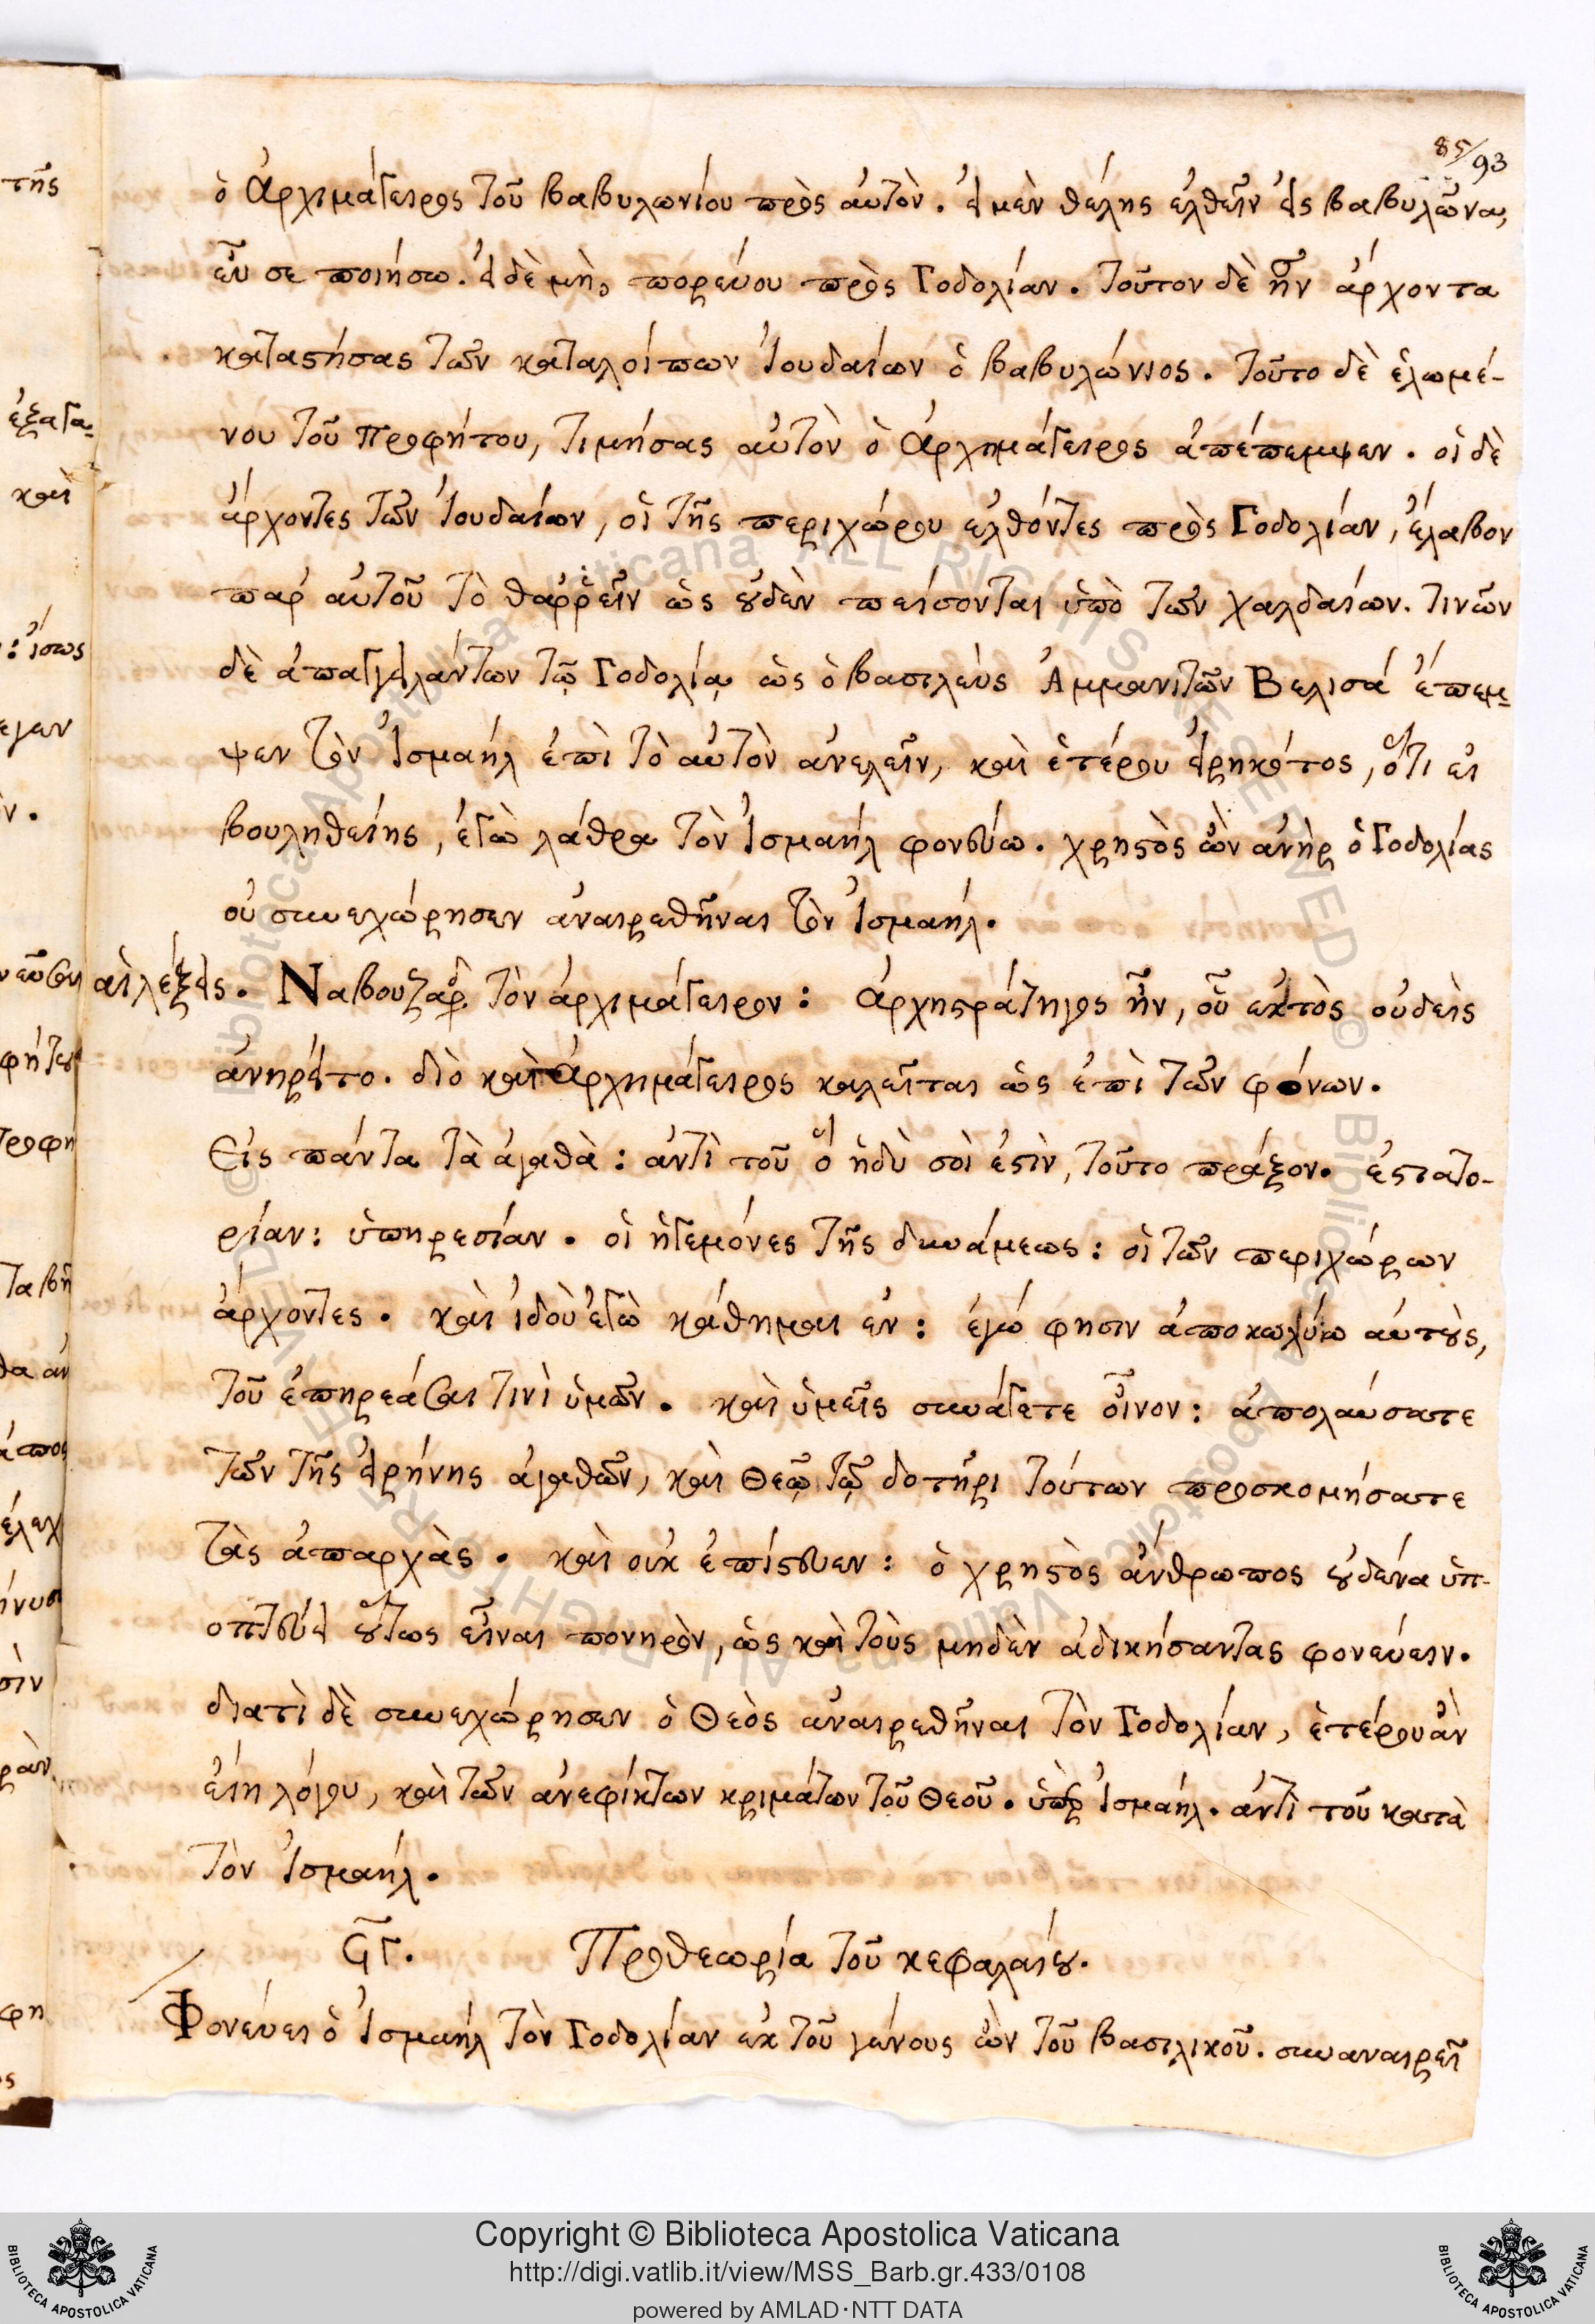 85/93
ὁ ἀρχιμάγειρος τοῦ βαβυλωνίου πρὸς αὐτὸν. εἰ μὲν θέλης ἐλθεῖν εἰς βαβυλῶνα,
εὖ σε ποιήσω. εἰ δὲ μὴ, πορεύου πρὸς Γοδολίαν. τοῦτον δὲ ἦν ἄρχοντα
καταστήσας τῶν καταλοίπων Ἰουδαίων ὁ βαβυλώνιος. τοῦτο δὲ ἑλωμέ-
νου τοῦ προφήτου, τιμήσας αὐτὸν ὁ ἀρχημάγειρος ἀπέπεμψεν. οἱ δὲ
ἄρχοντες τῶν Ἰουδαίων, οἱ τῆς περιχώρου ἐλθόντες πρὸς Γοδολίαν, ἔλαβον
παρ' αὐτοῦ τὸ θαῤῥεῖν ὡς οὐδὲν πείσονται ὑπὸ τῶν χαλδαίων. τινῶν
δὲ ἀπαγγειλάντων τῷ Γοδολίᾳ ὡς ὁ βασιλεὺς Ἀμμανιτῶν Βελισά ἔπεμ-
ψεν τὸν Ἰσμαήλ ἐπὶ τὸ αὐτὸν ἀνελεῖν, καὶ ἑτέρου εἰρηκότος, ὅτι εἰ
βουληθείης, ἐγὼ λάθρα τὸν Ἰσμαήλ φονεύω. χρηστὸς ὢν ἀνὴρ ὁ Γοδολίας
οὐ συνεχώρησεν ἀναιρεθῆναι τὸν Ἰσμαήλ.
αἱ λέξεις. Ναβουζαρ. τὸν ἀρχιμάγειρον: ἀρχηστράτηγος ἦν, οὗ ἐκτὸς οὐδεὶς
ἀνηρεῖτο. διὸ καὶ ἀρχημάγειρος καλεῖται ὡς ἐπὶ τῶν φόνων.
Εἰς πάντα τὰ ἀγαθὰ: ἀντὶ τοῦ ὃ ἡδὺ σοὶ ἐστὶν, τοῦτο πρᾶξον. ἐστατο-
ρίαν: ὑπηρεσίαν. οἱ ἡγεμόνες τῆς δυνάμεως: οἱ τῶν περιχώρων
ἄρχοντες. καὶ ἰδοὺ ἐγὼ κάθημαι ἐν: ἐγώ φησιν ἀποκωλύω αὐτοὺς,
τοῦ ἐπηρεάσαι τινὶ ὑμῶν. καὶ ὑμεῖς συνάγετε οἶνον: ἀπολαύσατε
τῶν τῆς εἰρήνης ἀγαθῶν, καὶ Θεῷ τῷ δοτῆρι τούτων προσκομήσατε
τὰς ἀπαρχὰς. καὶ οὐκ ἐπίστευεν: ὁ χρηστὸς ἄνθρωπος οὐδένα ὑπ-
οπτεύει οὕτως εἶναι πονηρὸν, ὡς καὶ τοὺς μηδὲν ἀδικήσαντας φονεύειν.
διατὶ δὲ συνεχώρησεν ὁ Θεὸς ἀναιρεθῆναι τὸν Γοδολίαν, ἑτέρου ἂν
εἴη λόγου, καὶ τῶν ἀνεφίκτων κριμάτων τοῦ Θεοῦ. ὑπὲρ Ἰσμαήλ. ἀντὶ τοῦ κατὰ
τὸν Ἰσμαήλ.
Ϛγ. Προθεωρία τοῦ κεφαλαίου.
Φονεύει ὁ Ἰσμαήλ τὸν Γοδολίαν ἐκ τοῦ γένους ὢν τοῦ βασιλικοῦ. συναναιρεῖ
Copyright © Biblioteca Apostolica Vaticana
http://digi.vatlib.it/view/MSS_Barb.gr.433/0108
powered by AMLAD·NTT DATA